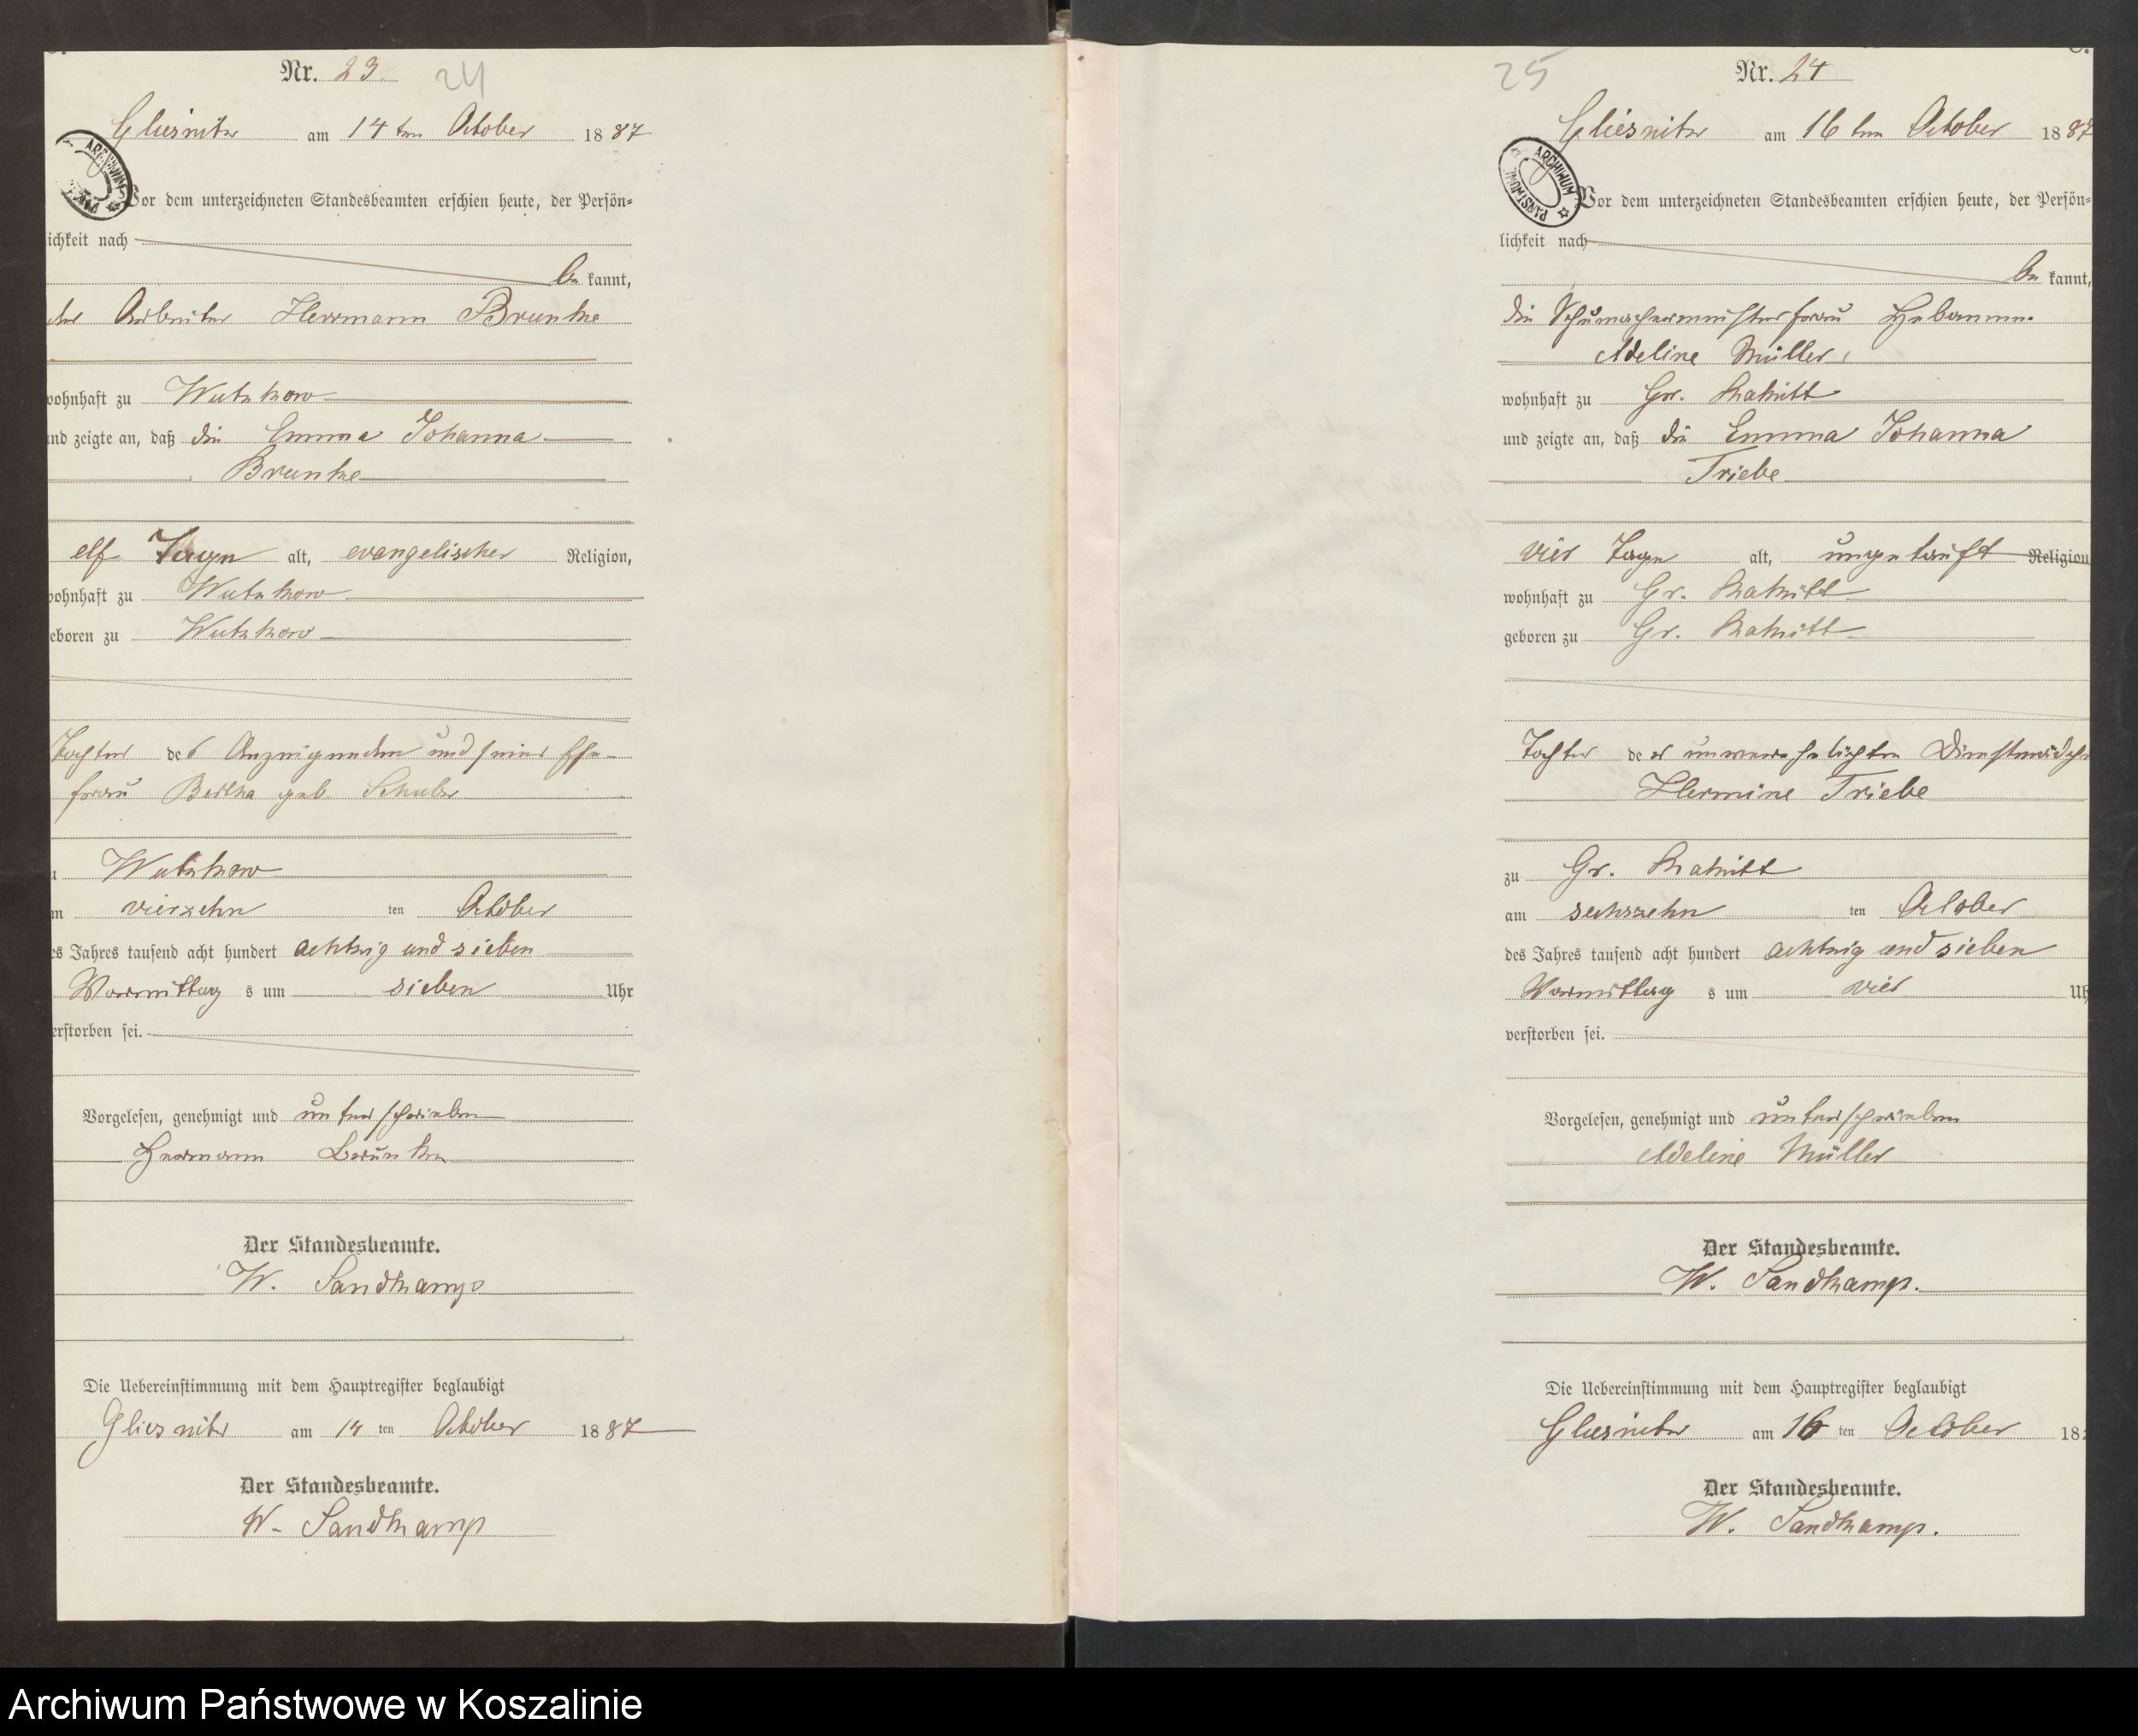 Nr. 23. 24
Gliesnitz am 14 ten October 1887
Vor dem unterzeichneten Standesbeamten erschien heute, der Persön-
lichkeit nach
be kannt,
der Arbeiter Herrmann Brunke
wohnhaft zu Wutzkow
und zeigte an, daß die Emma Johanna
Brunke
elf Tage alt, evangelischer Religion,
wohnhaft zu Wutzkow
geboren zu Wutzkow
Tochter des Anzeigenden und seiner Ehe-
frau Bertha geb.
zu Wutzkow
am vierzehn ten October
des Jahres tausend acht hundert achtzig und sieben
Vormittag s um sieben Uhr
verstorben sei.
Vorgelesen, genehmigt und unterschrieben
Hermann Brunke
Der Standesbeamte.
W. Sandkamp
Die Uebereinstimmung mit dem Hauptregister beglaubigt
Gliesnitz am 14 ten October 1887
Der Standesbeamte.
W. Sandkamp
25 Nr. 24
Gliesnitz am 16 ten October 1887
ARCHIWUM PAŃSTWOWE
Vor dem unterzeichneten Standesbeamten erschien heute, der Persön-
lichkeit nach
be kannt,
die Schumachermeisterfrau Hebamme
Adeline Müller,
wohnhaft zu Gr. Rakitt
und zeigte an, daß die Emma Johanna
Triebe
vier Tage alt, ungetauft Religion
wohnhaft zu Gr. Rakitt
geboren zu Gr. Rakitt
Tochter der unverehelichten Dienstmädche
Hermine Triebe
zu Gr. Rakitt
am sechszehn ten October
des Jahres tausend acht hundert achtzig und sieben
Vormittag s um vier Uh
verstorben sei.
Vorgelesen, genehmigt und unterschrieben
Adeline Müller
Der Standesbeamte.
W. Sandkamp.
Die Uebereinstimmung mit dem Hauptregister beglaubigt
Gliesnitz am 16 ten October 18
Der Standesbeamte.
W. Sandkamp.
Archiwum Państwowe w Koszalinie